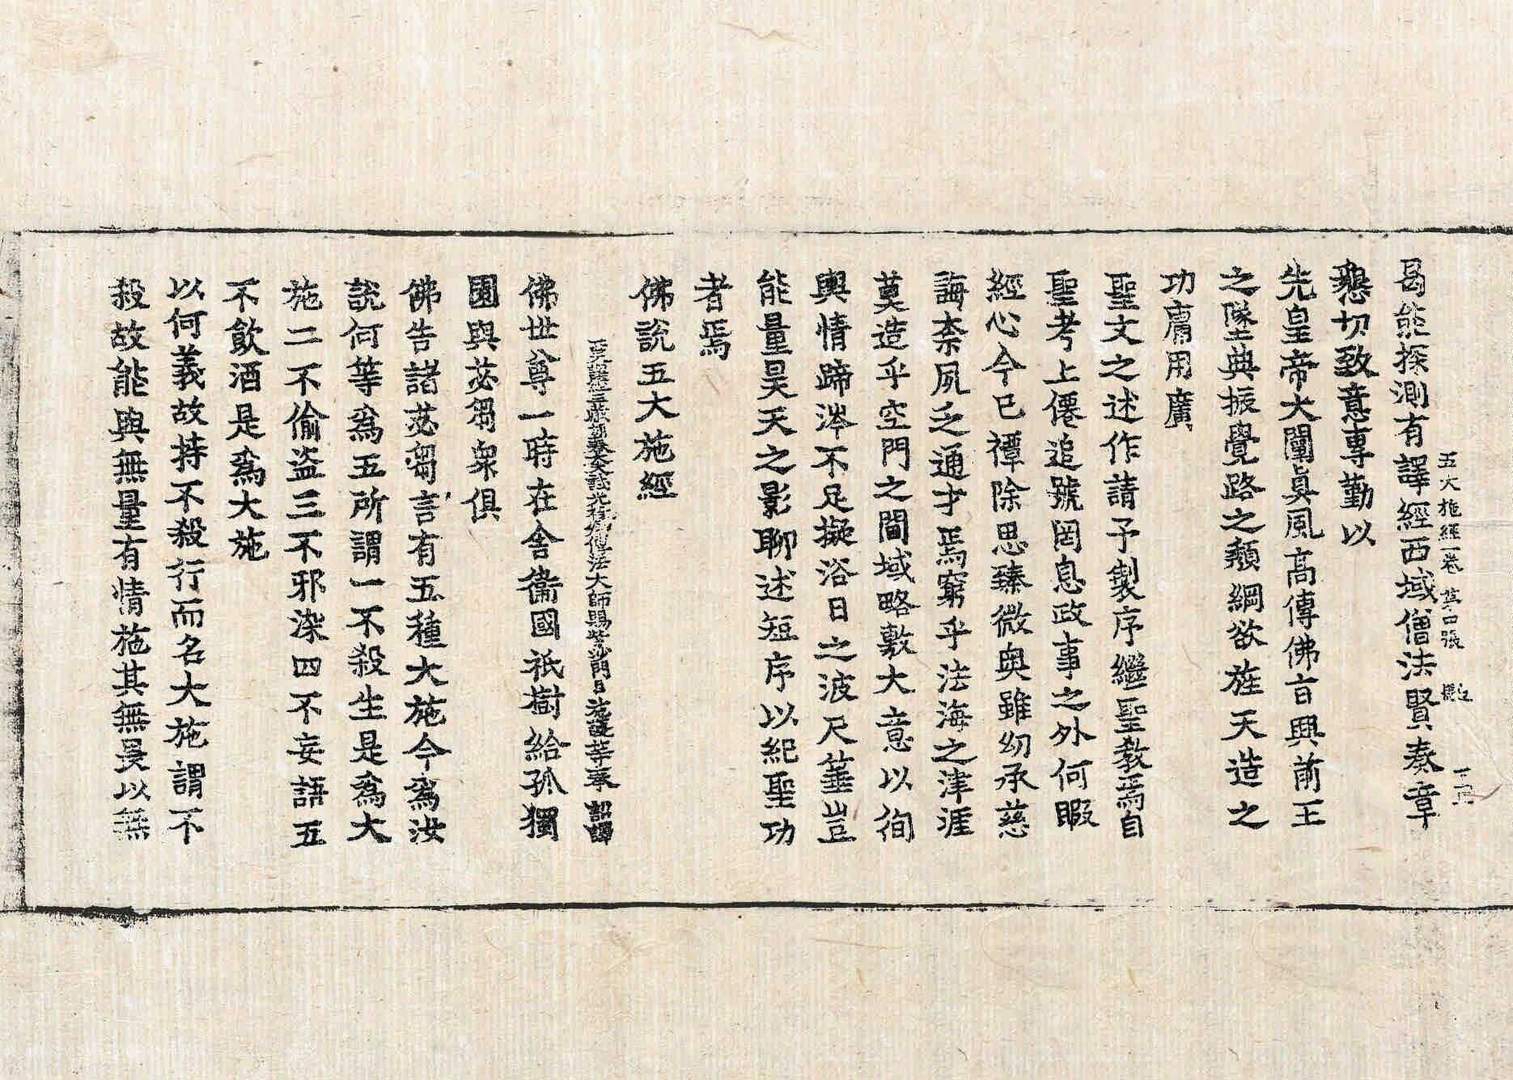 曷能探測有譯經西域僧法賢奏章
五大施經一卷 第口張
懇切致意專勤以
先皇帝大闡眞風高傳佛旨興前王
之墜典振覺路之頹綱欲旌天造之
功庸用廣
聖文之述作請予製序繼聖敎焉自
聖考上僊追號罔息政事之外何暇
經心今已禫除思臻微奧雖幼承慈
誨柰夙乏通才焉窮乎法海之津涯
莫造乎空門之閫域略敷大意以徇
輿情蹄涔不足擬浴日之波尺箠豈
能量昊天之影聊述短序以紀聖功
者焉
佛說五大施經
法大師賜紫沙門臣施護等奉 詔譯
佛世尊一時在舍衛國祇樹給孤獨
園與苾芻衆俱
佛告諸苾芻言有五種大施今爲汝
說何等爲五所謂一不殺生是爲大
施二不偷盜三不邪染四不妄語五
不飮酒是爲大施
以何義故持不殺行而名大施謂不
殺故能與無量有情施其無畏以無